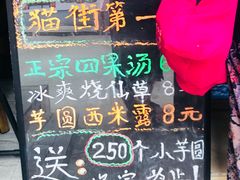 猫街第一
正宗四果汤
冰爽烧仙草 8
芋圆西米露 8元
送 250个小芋圆